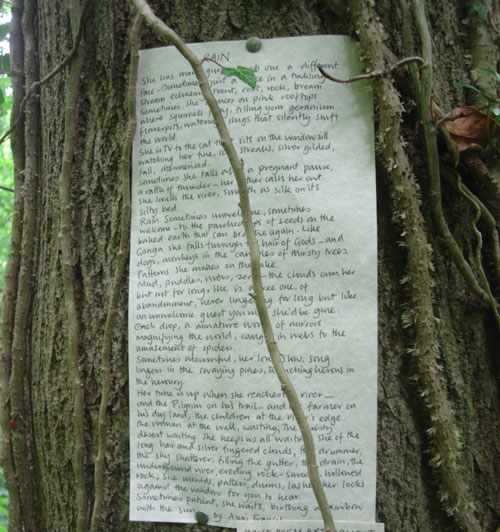 RAIN
She has many guises each one a different
face - Sometimes just a in a puddle,
Stream echoing, root, rock, bream,
Sometimes she dances on pink rooftops
where squirrels play, filling your geranium
flowerpots, watering things that silently shift
the world.
She is TV to the cat that sits on the window sill
watching her fine, cool streaks, silver gilded,
fall, mesmerised.
Sometimes she falls after a pregnant pause,
a rattle of thunder - her father calls her out.
She smells the river, smooth as silk on its
silty bed.
Rain. Sometimes unwelcome, sometimes
welcome - to the parched lips of seeds on the
baked earth that can breathe again. Like
Ganga she falls through the hair of Gods - and
dogs, monkeys in the canopies of thirsty trees.
Patterns she makes on the lake.
Mud, puddles, rivers, - the clouds own her
but not for long, she is a free one, of
abandonment, never lingering for long but like
an unwelcome guest you wish she'd be gone.
Each drop, a minature world of mirrors
magnifying the world, caught in webs to the
amusement of spiders.
Sometimes mournful, her long slow, song
lingers in the swaying pines, drenching herons in
the heronry.
Her time is up when she reaches the river -
and the Pilgrim on his trail - and the farmer on
his dry land, the children at the river's edge
the woman at the well, waiting, the thirsty
desert waiting. She keeps us all waiting, she of the
long hair and silver fingered clouds, the drummer,
the sky shatterer, filling the gutter, the drain, the
underground river, eroding rock - smooth, hallowed
rock, she moulds, patters, drums, lashes her locks
against the window for you to hear.
Sometimes patient, she waits, birthing a rainbow
with the sun. by